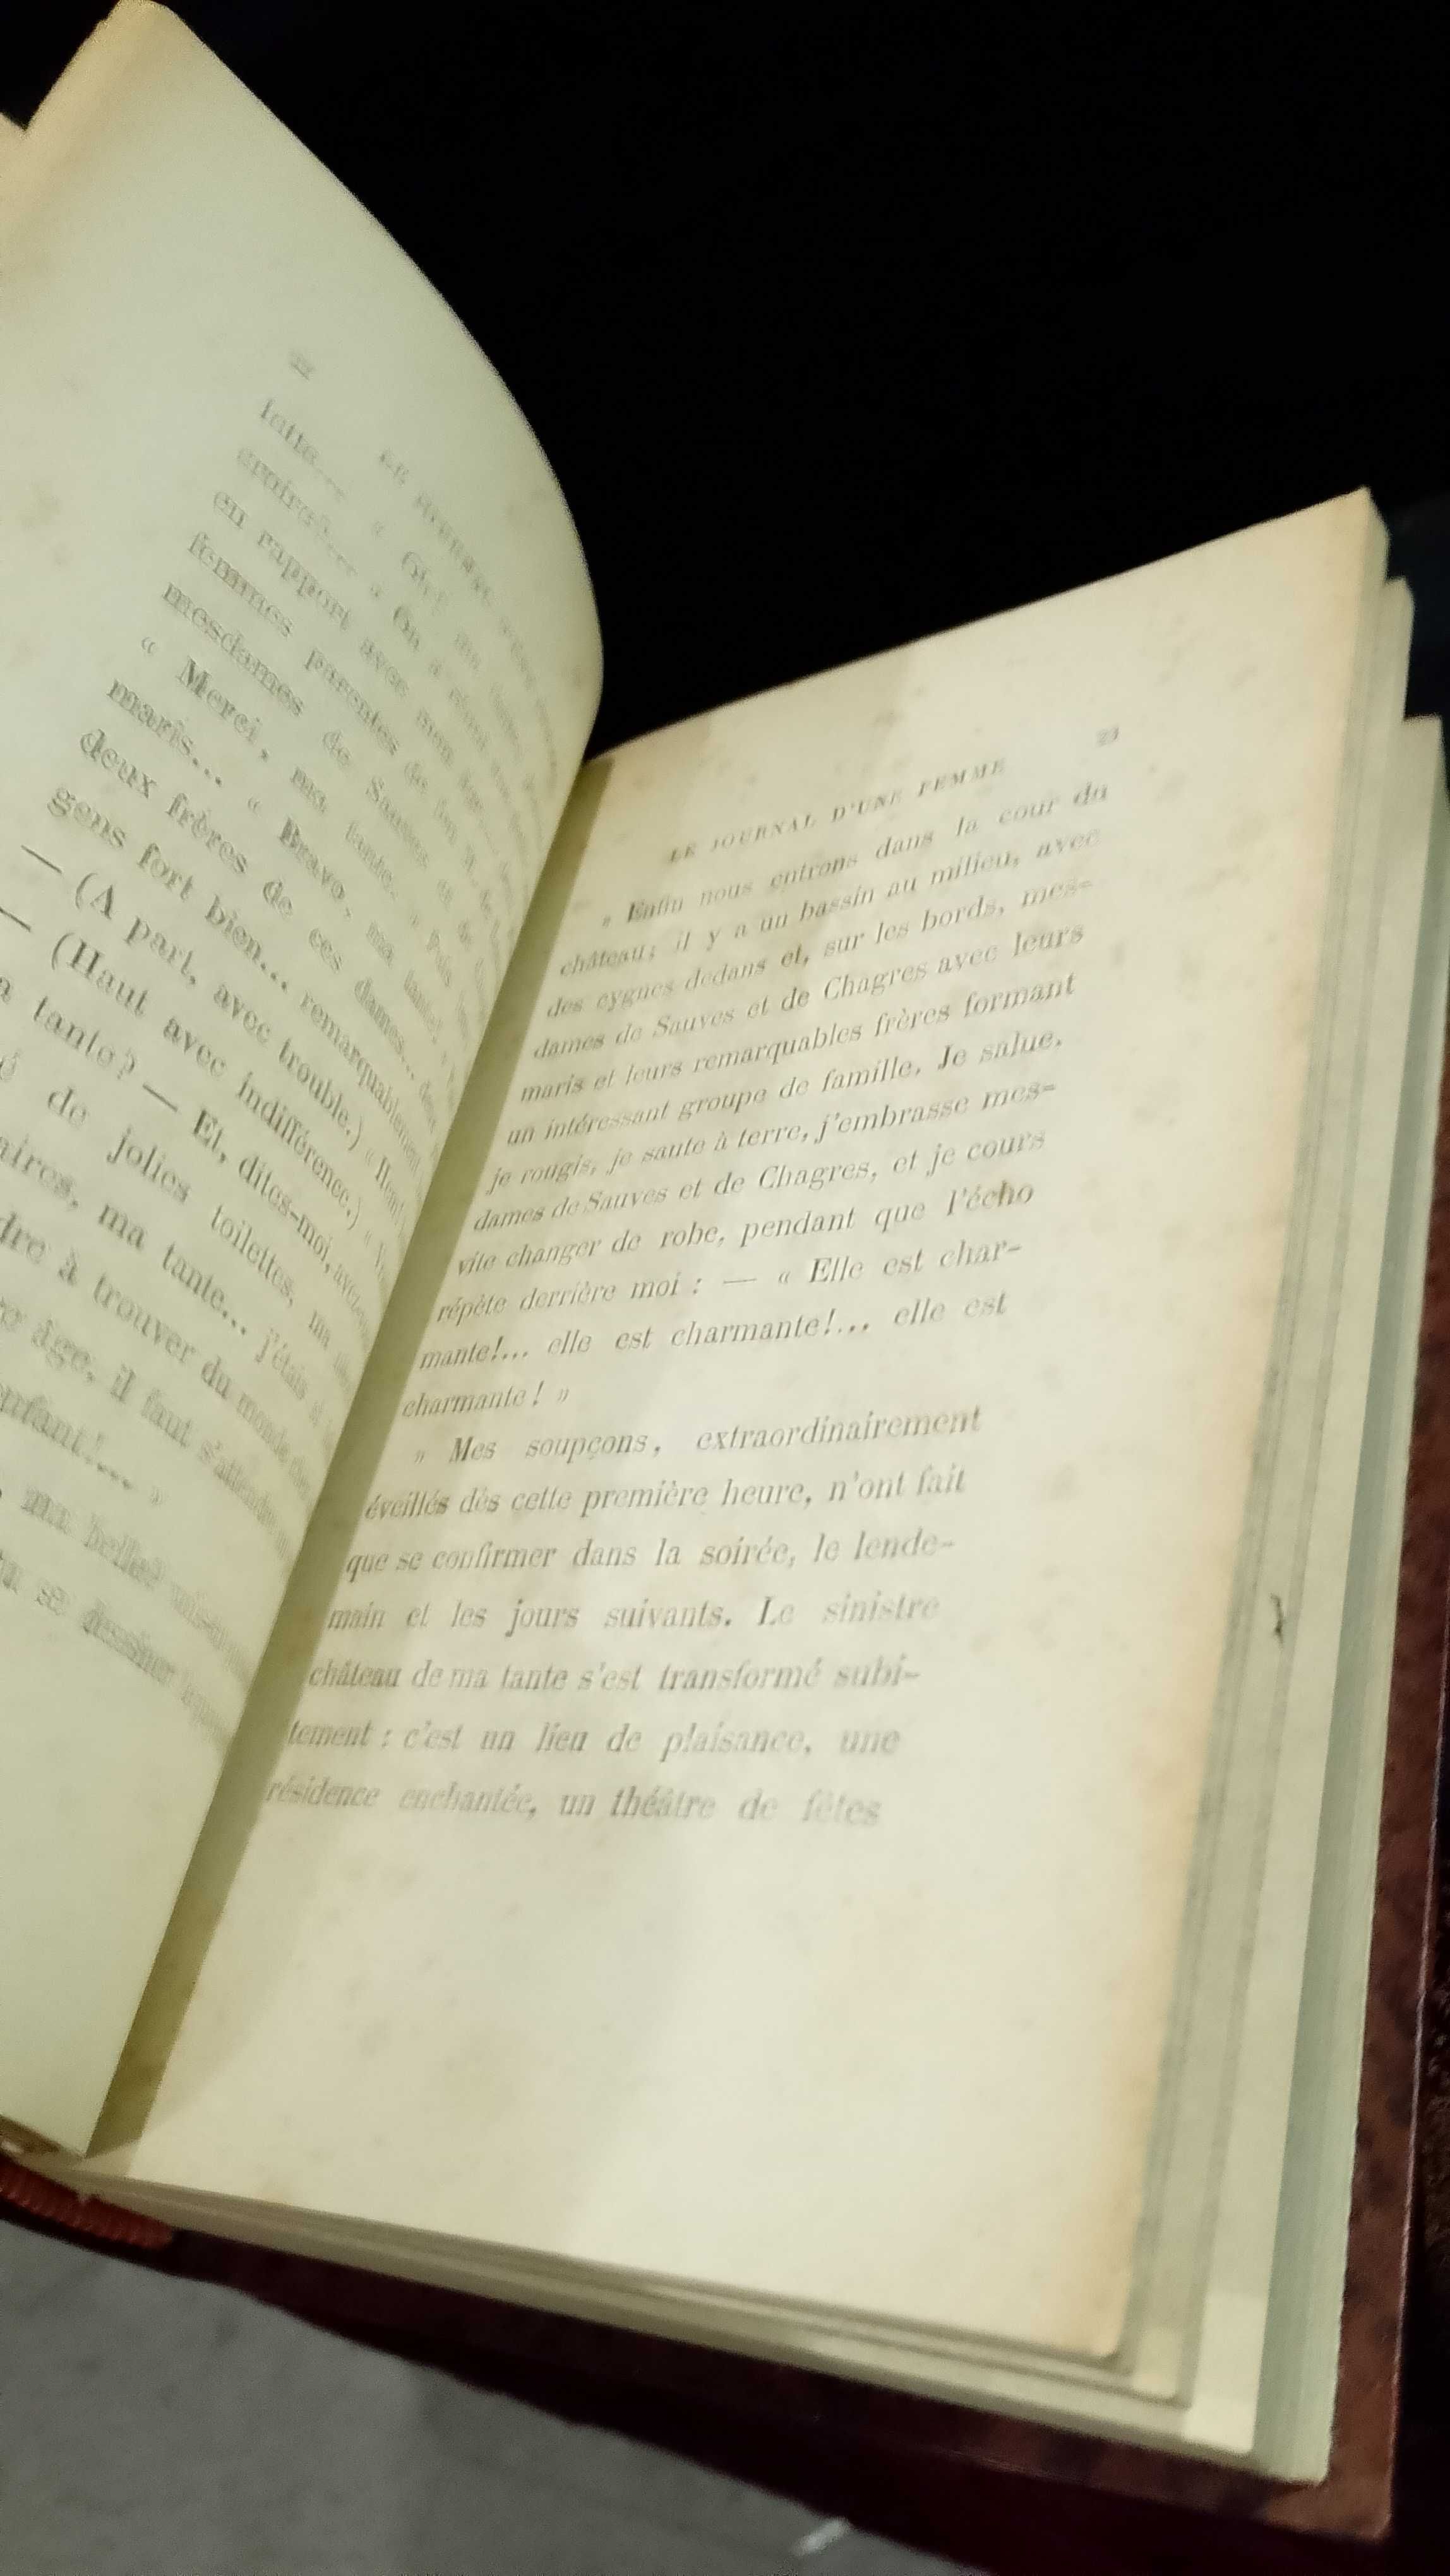 22
en rapport avec mon âge...
femmes parentes de feu M. de
mesdames de Sauves et de
« Merci, ma tante. » Puis
maris... « Bravo, ma tante! »
deux frères de ces dames... deux
gens fort bien... remarquablement
— (A part, avec trouble.) « Hem!
— (Haut avec indifférence.) «
tante? — Et, dites-moi, avez-
de jolies toilettes, ma
aires, ma tante... j'étais si
dre à trouver du monde chez
âge, il faut s'attendre
enfant!... »
ma belle?
se dessiner
LE JOURNAL D'UNE FEMME 23
» Enfin nous entrons dans la cour du
château; il y a un bassin au milieu, avec
des cygnes dedans et, sur les bords, mes-
dames de Sauves et de Chagres avec leurs
maris et leurs remarquables frères formant
un intéressant groupe de famille. Je salue,
je rougis, je saute à terre, j'embrasse mes-
dames de Sauves et de Chagres, et je cours
vite changer de robe, pendant que l'écho
répète derrière moi : — « Elle est char-
mante!... elle est charmante!... elle est
charmante! »
» Mes soupçons, extraordinairement
éveillés dès cette première heure, n'ont fait
que se confirmer dans la soirée, le lende-
main et les jours suivants. Le sinistre
château de ma tante s'est transformé subi-
tement : c'est un lieu de plaisance, une
résidence enchantée, un théâtre de fêtes